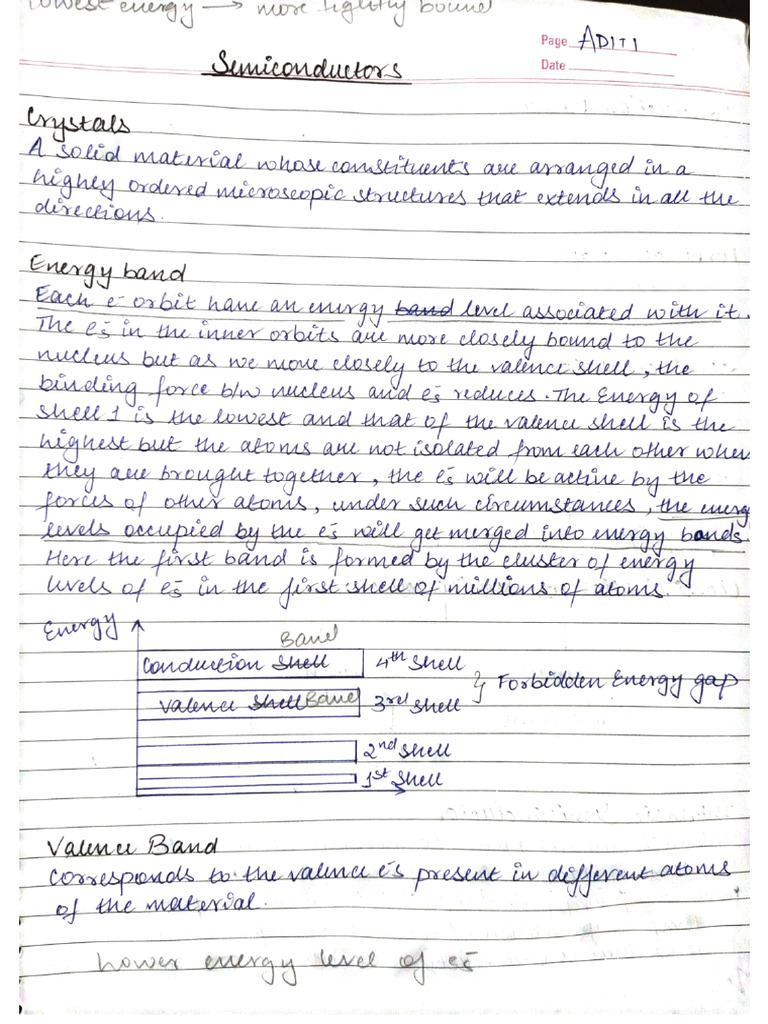 lowest energy → more tightly bound
Page ADITI
Date
Semiconductors
Crystals
A solid material whose constituents are arranged in a
highly ordered microscopic structures that extends in all the
directions.
Energy band
Each e- orbit have an energy band level associated with it.
The es in the inner orbits are more closely bound to the
nucleus but as we move closely to the valence shell, the
binding force b/w nucleus and es reduces. The Energy of
shell 1 is the lowest and that of the valence shell is the
highest but the atoms are not isolated from each other when
they are brought together, the es will be active by the
forces of other atoms, under such circumstances, the energ
levels occupied by the es will get merged into energy bands.
Here the first band is formed by the cluster of energy
levels of es in the first shell of millions of atoms.
Energy
Band
Conduction Shell 4th Shell
Forbidden Energy gap
Valence Shell Band 3rd Shell
2nd Shell
1st Shell
Valence Band
Corresponds to the valence e's present in different atoms
of the material.
Lower energy level of es